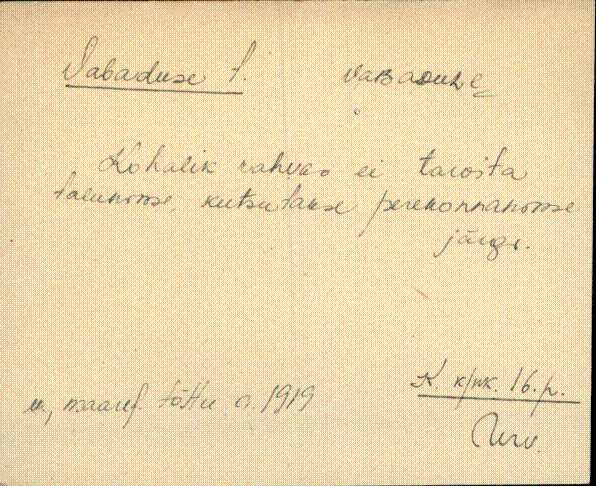 Vabaduse t. vabaduze
Kohalik rahvas ei tarvita
talunime, kutsutakse perekonnanime
järgi.
K. k/mk. 16. p.
u., maaref. tõttu a. 1919
Urv.